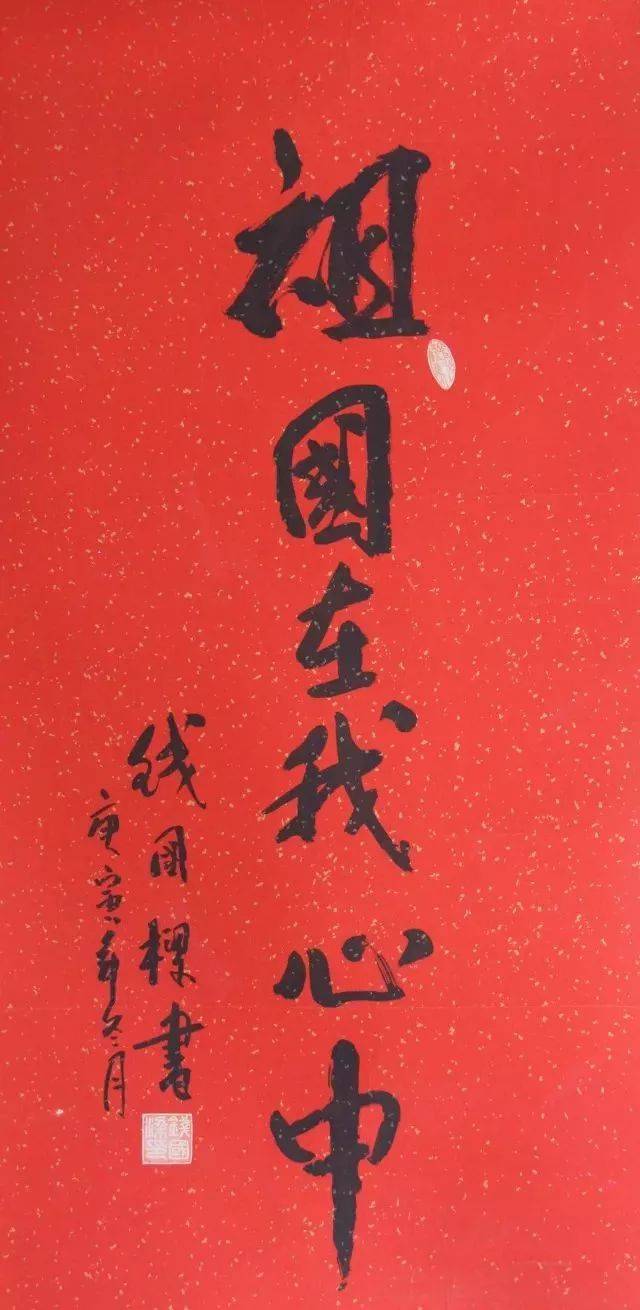 祖國在我心中
庚寅年冬月
钱国梁書